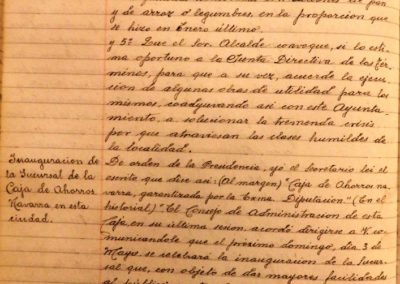 y de arroz o legumbres, en la proporcion que
se hizo en Enero último.
y 5º Que el Sor. Alcalde convoque, si lo esti-
ma oportuno a la Junta Directiva de los Tér-
minos, para que a su vez, acuerde la ejecu-
cion de algunas obras de utilidad para los
mismos, coadyuvando asi con este Ayunta-
miento, a solucionar la tremenda crisis
por que atraviesan las clases humildes de
la localidad.
Inauguracion de
la Sucursal de la
Caja de Ahorros
Navarra en esta
ciudad.
De orden de la Presidencia, yó el Secretario lei el
escrito que dice asi: (Al margen) "Caja de Ahorros na-
varra, garantizada por la Excma Diputacion." (En el
historial) "El Consejo de Administracion de esta
Caja, en su última sesion, acordó dirigirse a V. co-
municandole que el próximo domingo, dia 3 de
Mayo, se celebrará la inauguracion de la Sucur-
sal que, con objeto de dar mayores facilidades
al público